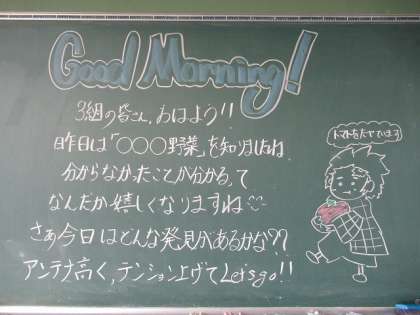 Good Morning!
3組の皆さん、おはよう!!
昨日は「○○○野菜」を知りましたね
分からなかったことが分かるって
なんだか嬉しくなりますね♡
さあ今日はどんな発見があるかな??
アンテナ高く、テンション上げてLet's go!!
トマトを